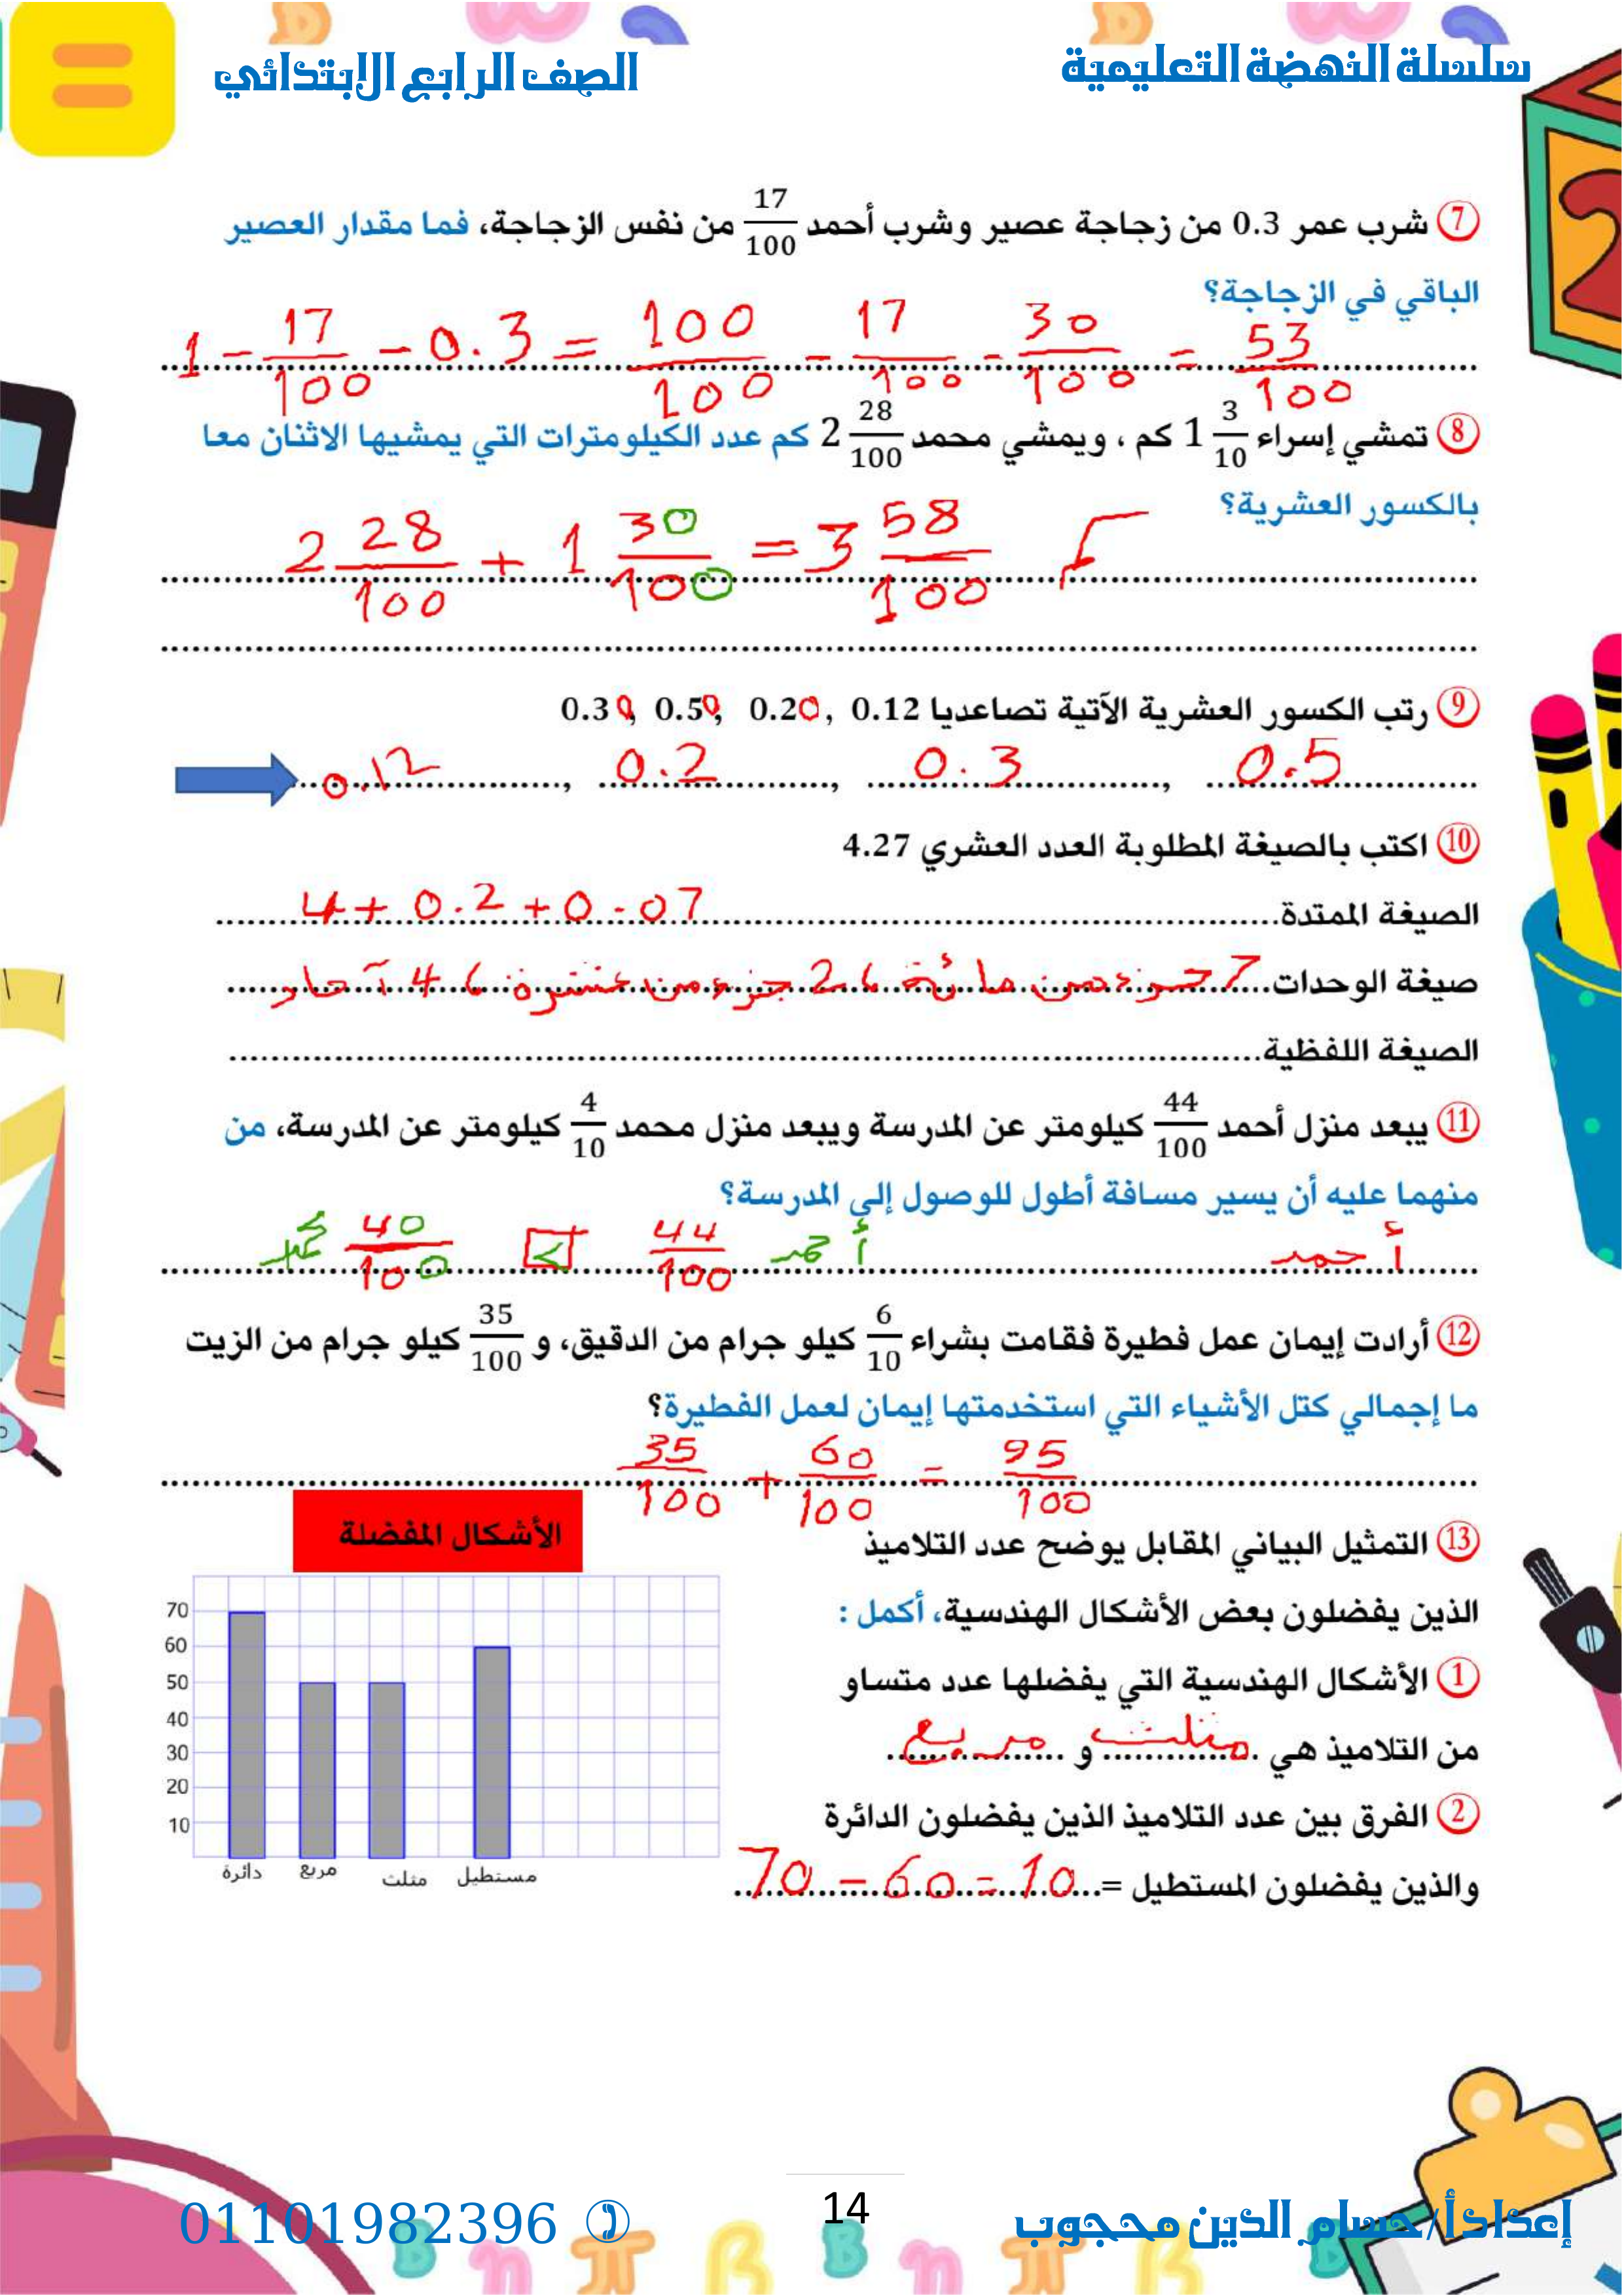 سلسلة النهضة التعليمية
الصف الرابع الابتدائي
7 شرب عمر 0.3 من زجاجة عصير وشرب أحمد 17/100 من نفس الزجاجة، فما مقدار العصير
الباقي في الزجاجة؟
1 - 17/100 - 0.3 = 100/100 - 17/100 - 30/100 = 53/100
8 تمشي إسراء 1 3/10 كم ، ويمشي محمد 2 28/100 كم عدد الكيلومترات التي يمشيها الاثنان معا
بالكسور العشرية؟
2 28/100 + 1 30/100 = 3 58/100
9 رتب الكسور العشرية الآتية تصاعديا 0.12 , 0.20 , 0.50 , 0.30
0.12 , 0.2 , 0.3 , 0.5
10 اكتب بالصيغة المطلوبة العدد العشري 4.27
الصيغة الممتدة 4 + 0.2 + 0.07
صيغة الوحدات 7 جزء من مائة ، 2 جزء من عشرة ، 4 آحاد
الصيغة اللفظية
11 يبعد منزل أحمد 44/100 كيلومتر عن المدرسة ويبعد منزل محمد 4/10 كيلومتر عن المدرسة، من
منهما عليه أن يسير مسافة أطول للوصول إلى المدرسة؟
أحمد أحمد 44/100 > 40/100 محمد
12 أرادت إيمان عمل فطيرة فقامت بشراء 6/10 كيلو جرام من الدقيق، و 35/100 كيلو جرام من الزيت
ما إجمالي كتل الأشياء التي استخدمتها إيمان لعمل الفطيرة؟
35/100 + 60/100 = 95/100
13 التمثيل البياني المقابل يوضح عدد التلاميذ
الذين يفضلون بعض الأشكال الهندسية، أكمل :
1 الأشكال الهندسية التي يفضلها عدد متساو
من التلاميذ هي مثلث و مربع
2 الفرق بين عدد التلاميذ الذين يفضلون الدائرة
والذين يفضلون المستطيل = 70 - 60 = 10
الأشكال المفضلة
70
60
50
40
30
20
10
دائرة مربع مثلث مستطيل
إعداد أ/ حسام الدين محجوب
14
01101982396